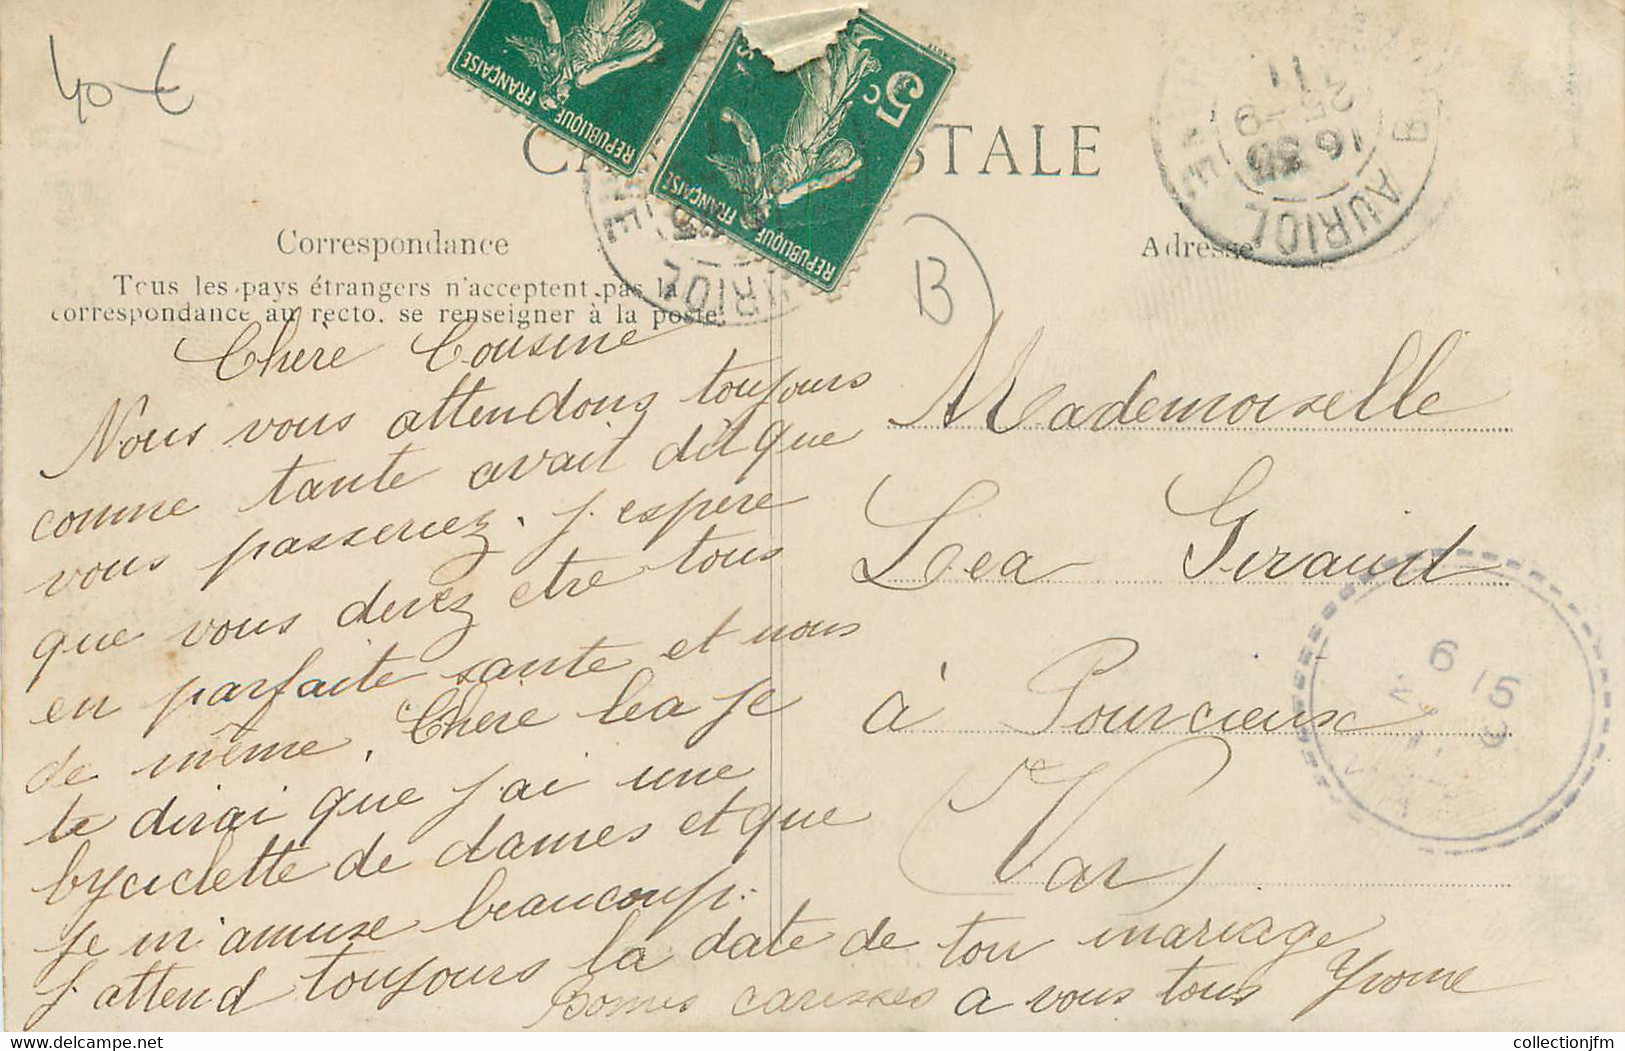 40 €
RÉPUBLIQUE FRANÇAISE
RÉPUBLIQUE FRANÇAISE
5c
STALE
AURIOL
16 30
25 - 9
11
B
Correspondance
Tous les pays étrangers n'acceptent pas la
correspondance au recto. se renseigner à la poste.
Adresse
Chère Cousine
Nous vous attendons toujours
comme tante avait dit que
vous passeriez. j. espère
que vous devez etre tous
en parfaite sante et nous
de même. Chère lea je
te dirai que j. ai une
byciclette de dames et que
je m'amuse beaucoup.
j. attend toujours la date de ton mariage
Bonnes caresses a vous tous Yvonne
Mademoiselle
Lea Giraud
à Pourcieux
Var
6 15
collectionjfm